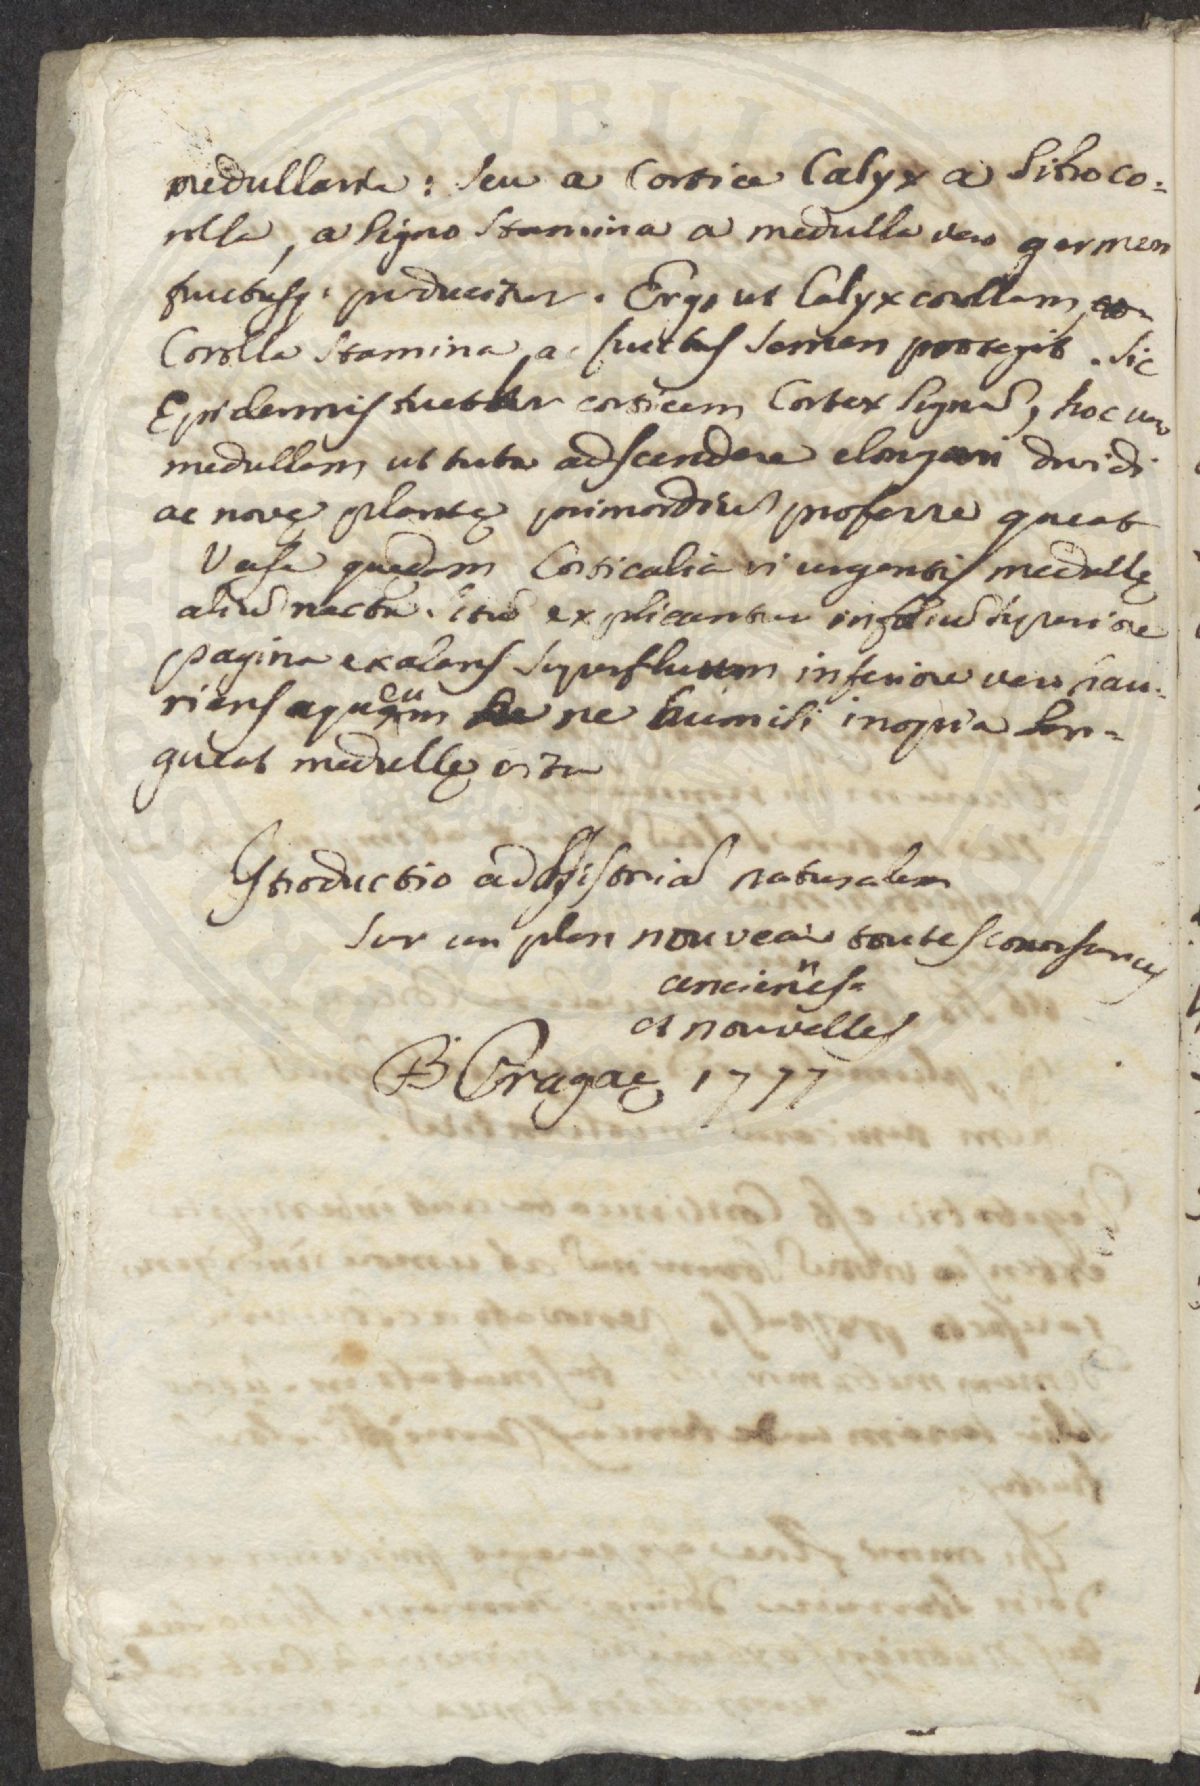 medullante: seu a Cortice Calyx a Libro co=
rolla, a ligno Stamina a medulla vero germen
fructusq: producitur. Ergo ut Calyx corollam,
Corolla Stamina, ac fructus Semen protegit. Sic
Epidermis tuetur corticem Cortex lignū, hoc vero
medullam ut tuta adscendere elongari dividi
ac novę plantę primordiū proferre queat
Vasa quędam Corticalia vi urgentis medullę
aliū nacta explicantur in foliū superiore
pagina exalans superfluum inferiore vero hau=
riens ne humili inopia lan=
gueat medullę vita
Itroductio ad Historiā naturalem
sur un plan nouveau toutes conoissances
anciennes
et nouvelles
B Pragae 1777
PVBLIC